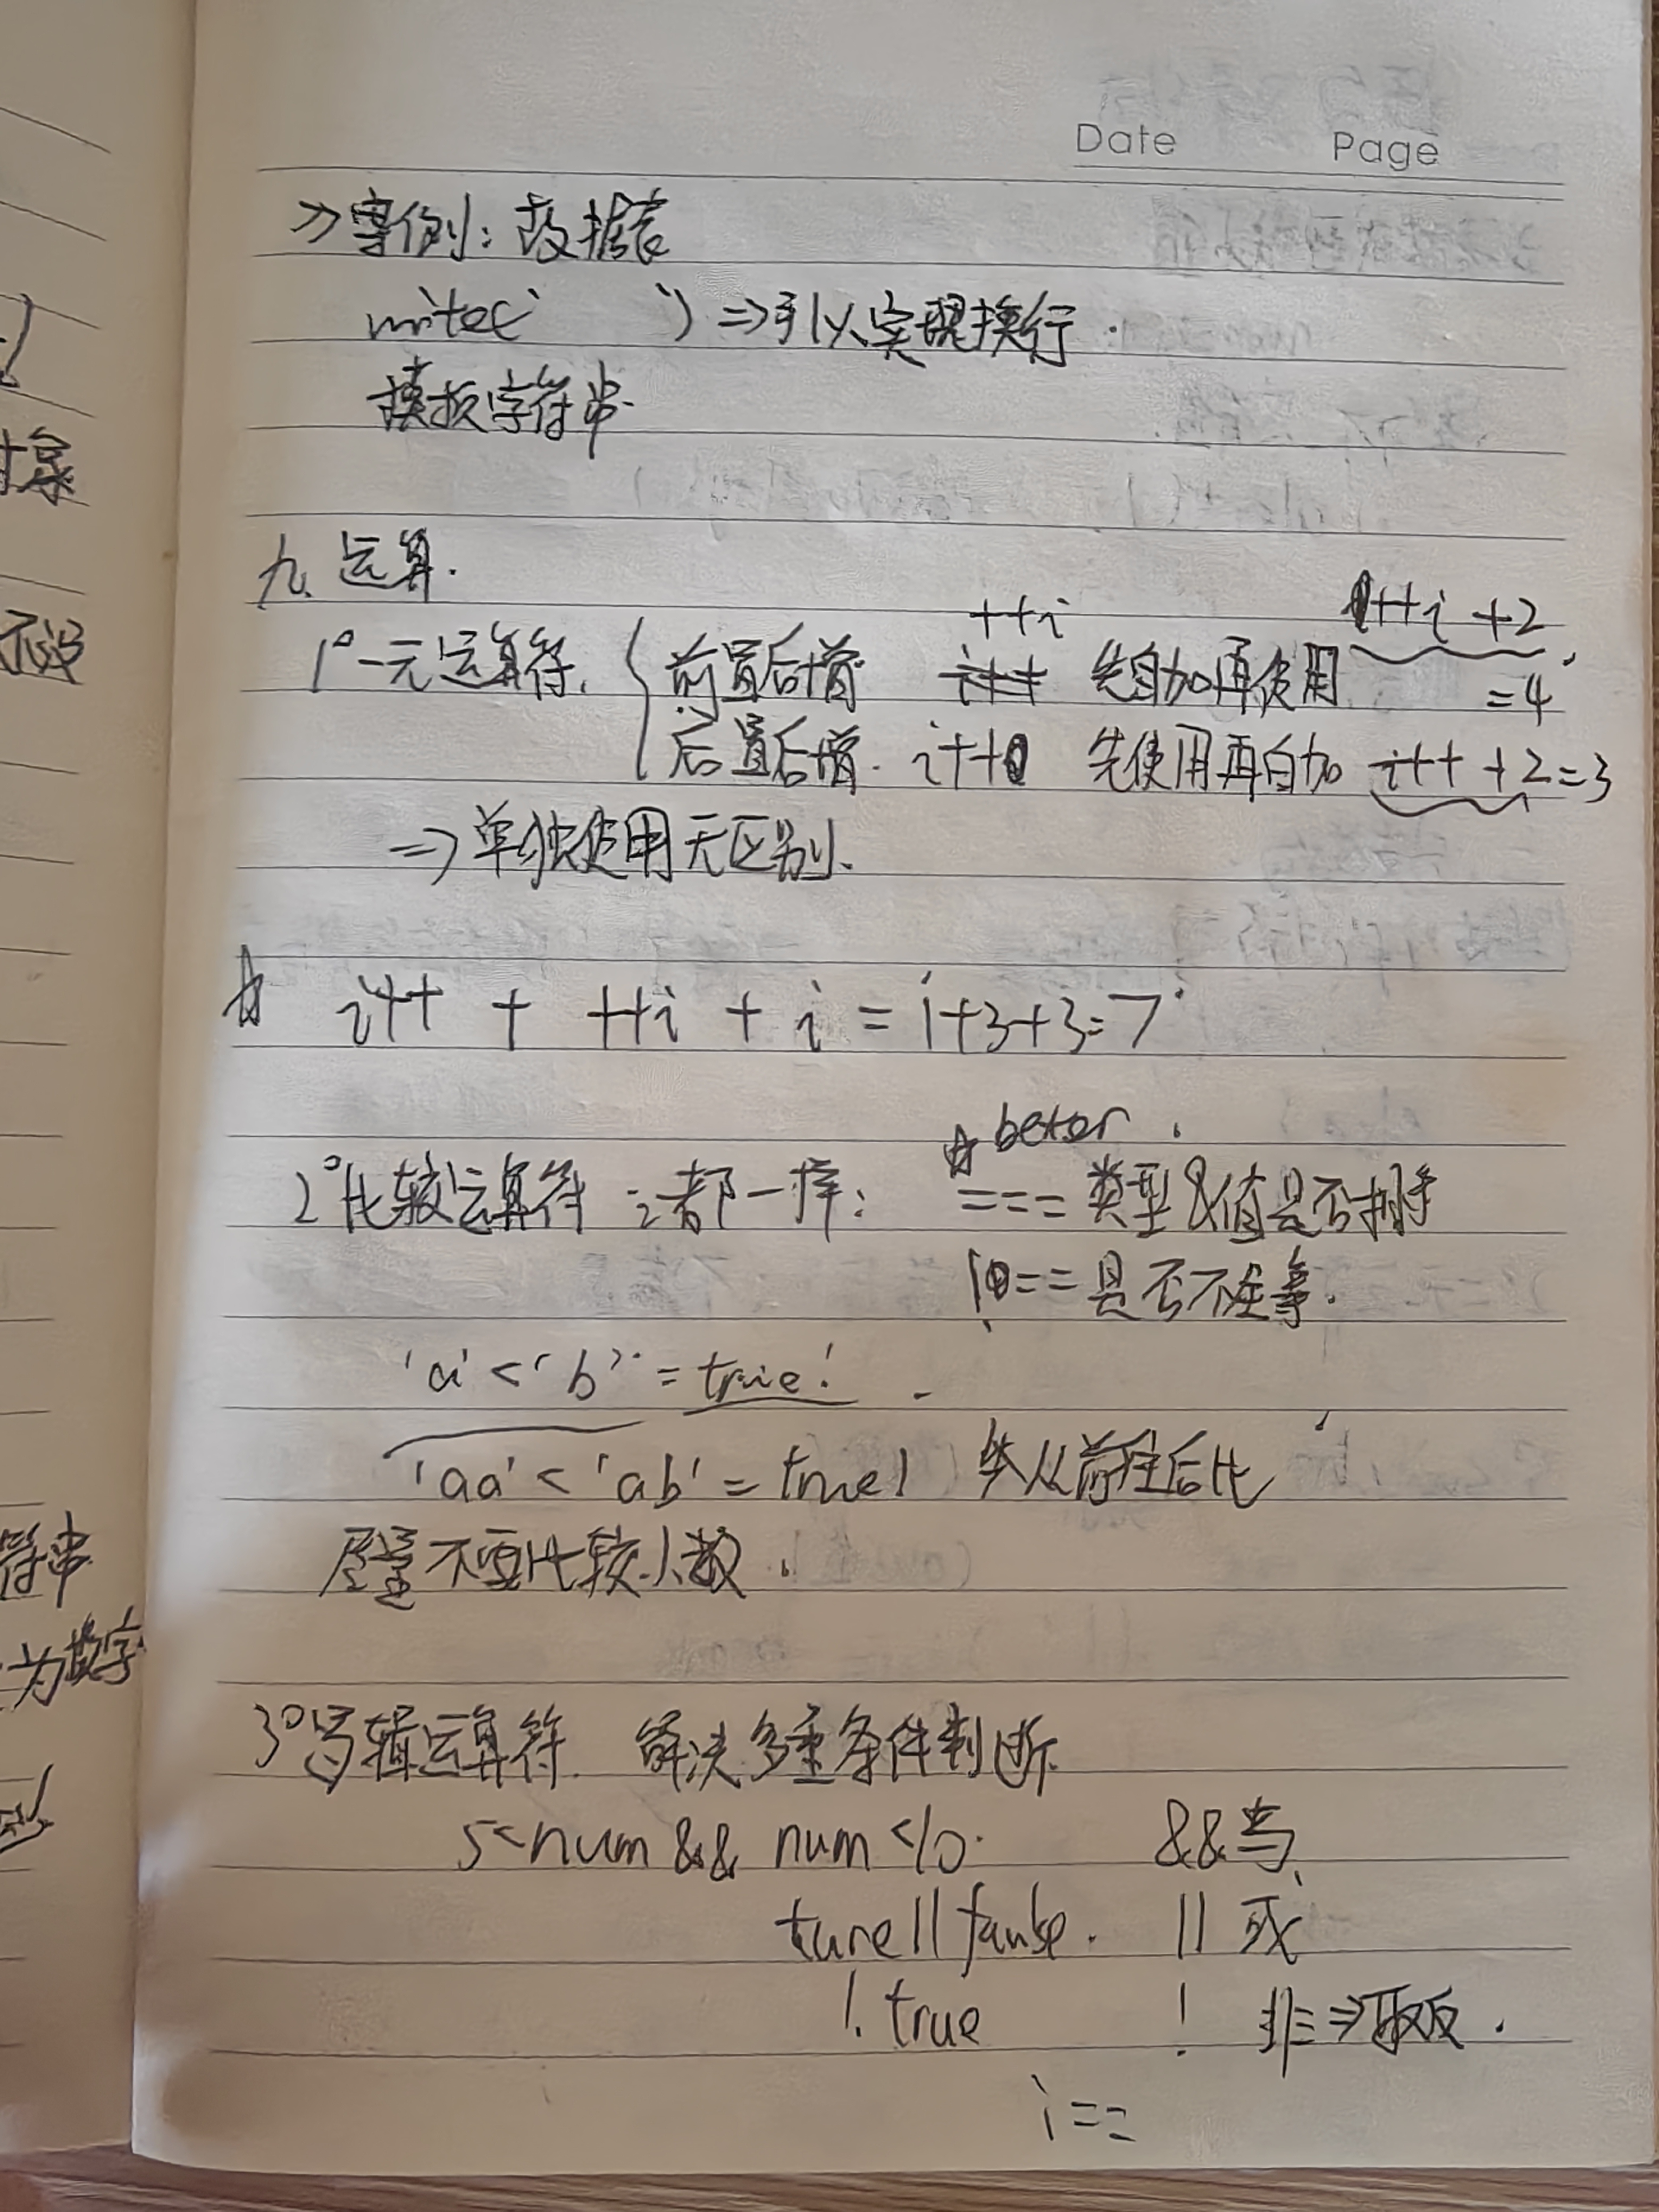 Date Page
>> 案例：数据表
write(` `) => 可以实现换行.
模板字符串.
九、运算.
++i ++i +2
1° 一元运算符. { 前置后增 i++ 先自加再使用 =4
后置后增. i++ 先使用再自加 i++ +2=3
=> 单独使用无区别.
☆ i++ + ++i + i = 1+3+3=7
☆ better.
2° 比较运算符 : 都一样: === 类型&值是否
!== 是否不全等.
'a' < 'b' = true!
'aa' < 'ab' = true! 从前往后比
尽量不要比较小数.
3° 逻辑运算符. 解决多重条件判断
5<num && num <10. &&与
ture || faulse. || 或
!. true ! 非 => 取反.
i==
符串
为数字